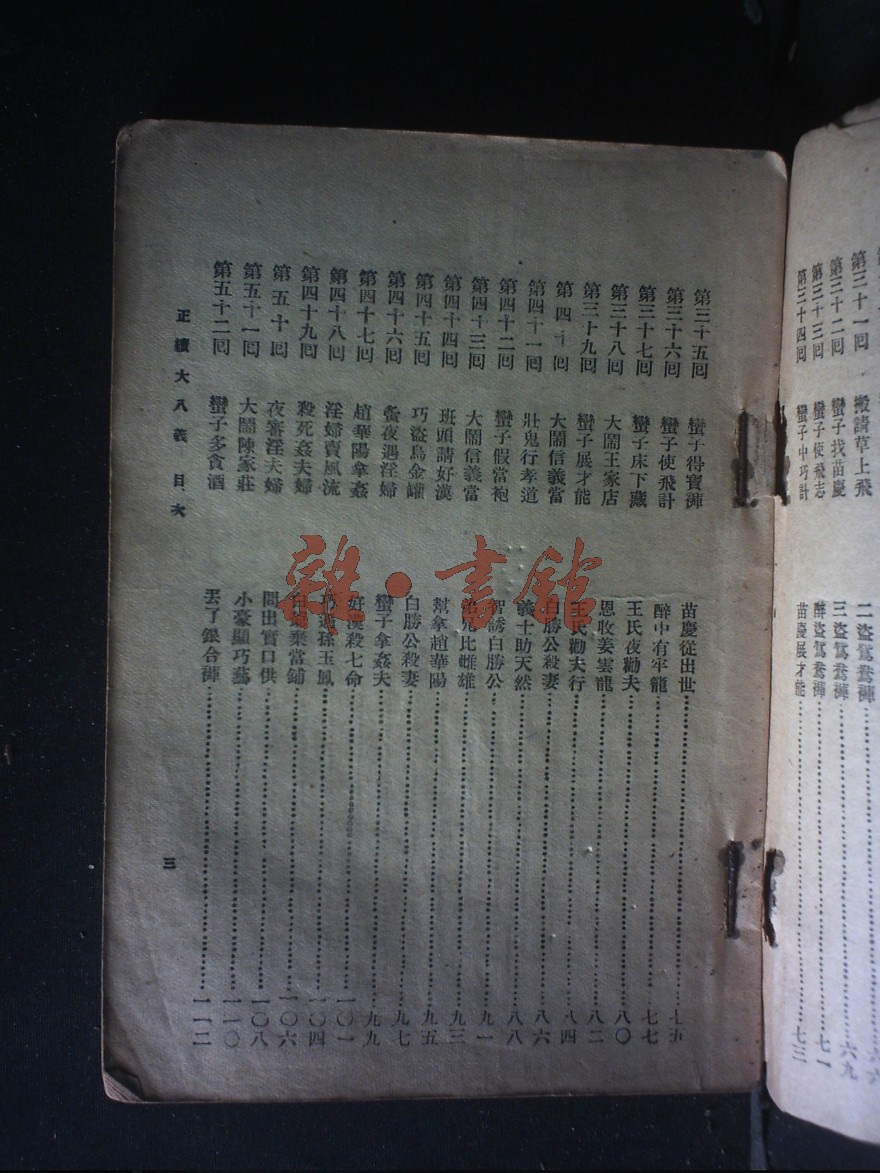 第三十一回　搬請草上飛
第三十二回　蠻子找苗慶　二盜鴛鴦褲 六六
第三十三回　蠻子使飛志　三盜鴛鴦褲 六九
第三十四回　蠻子中巧計　醉盜鴛鴦褲 七一
苗慶展才能 七三
第三十五回　蠻子得寶褲　苗慶從出世 七五
第三十六回　蠻子使飛計　醉中有牢籠 七七
第三十七回　蠻子床下藏　王氏夜勸夫 八〇
第三十八回　大鬧王家店　恩收姜雲龍 八二
第三十九回　蠻子展才能　王氏勸夫行 八四
第四十回　大鬧信義當　白勝公殺妻 八六
第四十一回　壯鬼行孝道　義士助天然 八八
第四十二回　蠻子假當袍　智誘白勝公 九一
第四十三回　大鬧信義當　弟兄比雌雄 九三
第四十四回　班頭請好漢　幫拿趙華陽 九五
第四十五回　巧盜烏金罐　白勝公殺妻 九七
第四十六回　黌夜遇淫婦　蠻子拿姦夫 九九
第四十七回　趙華陽拿姦　好漢殺七命 一〇一
第四十八回　淫婦賣風流　巧遇孫玉鳳 一〇四
第四十九回　殺死姦夫婦　白如乘當鋪 一〇六
第五十回　夜審淫夫婦　問出實口供 一〇八
第五十一回　大鬧陳家莊　小豪顯巧藝 一一〇
第五十二回　蠻子多貪酒　丟了銀合褲 一一二
正續大八義　目次
三
雜·書館